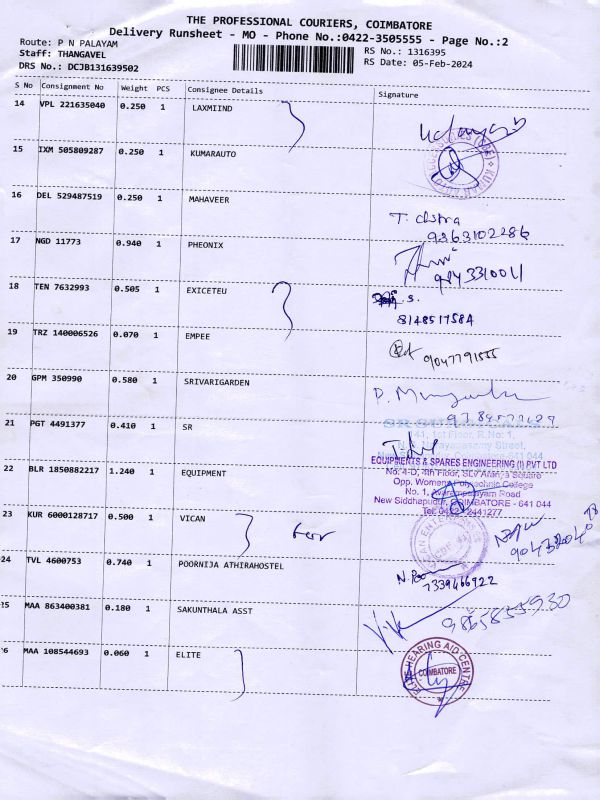 THE PROFESSIONAL COURIERS, COIMBATORE
Delivery Runsheet - MO - Phone No.:0422-3505555 - Page No.:2
Route: P N PALAYAM
Staff: THANGAVEL
DRS No.: DCJB131639502
RS No.: 1316395
RS Date: 05-Feb-2024
S No Consignment No Weight PCS Consignee Details Signature
14 VPL 221635040 0.250 1 LAXMIIND
15 IXM 505809287 0.250 1 KUMARAUTO
16 DEL 529487519 0.250 1 MAHAVEER
9363102286
17 NGD 11773 0.940 1 PHEONIX
18 TEN 7632993 0.505 1 EXICETEU
8148517584
19 TRZ 140006526 0.070 1 EMPEE
9047791555
20 GPM 350990 0.580 1 SRIVARIGARDEN
21 PGT 4491377 0.410 1 SR
EQUIPMENTS & SPARES ENGINEERING (I) PVT LTD
22 BLR 1850882217 1.240 1 EQUIPMENT
No. 4-D, 4th Floor, SLV Ananya Square
Opp. Womens Polytechnic College
No. 1, Avarampalayam Road
New Siddhapudur, COIMBATORE - 641 044
Tel: 0422 - 2441277
23 KUR 6000128717 0.500 1 VICAN
24 TVL 4600753 0.740 1 POORNIJA ATHIRAHOSTEL
7339466922
25 MAA 863400381 0.180 1 SAKUNTHALA ASST
9865855930
26 MAA 108544693 0.060 1 ELITE
ELITE HEARING AID CENTRE
COIMBATORE